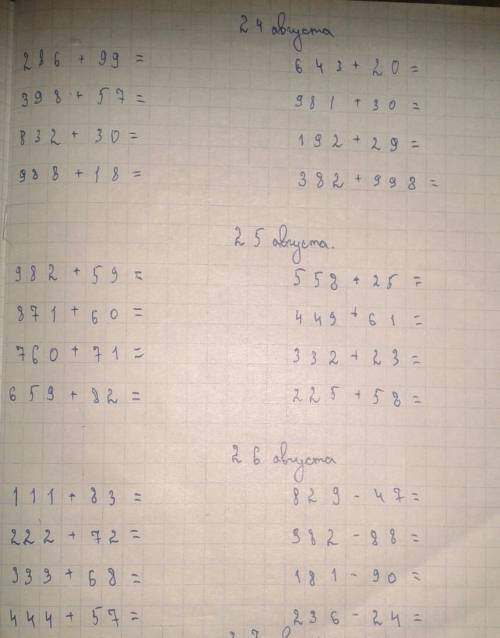 24 августа
286 + 99 =
643 + 20 =
398 + 57 =
981 + 30 =
832 + 30 =
192 + 29 =
988 + 18 =
382 + 998 =
25 августа.
982 + 59 =
558 + 25 =
871 + 60 =
449 + 61 =
760 + 71 =
332 + 23 =
659 + 82 =
225 + 58 =
26 августа
111 + 83 =
829 - 47 =
222 + 72 =
982 - 88 =
333 + 68 =
181 - 90 =
444 + 57 =
236 - 24 =